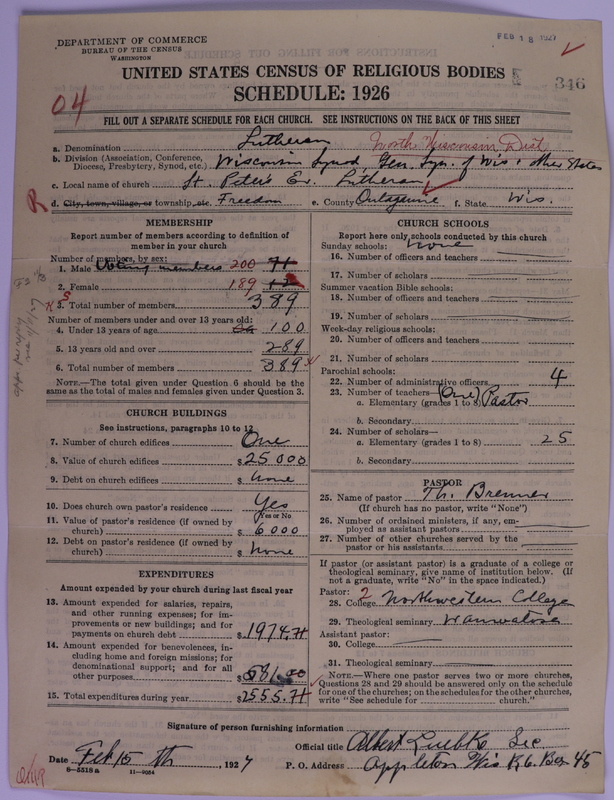 DEPARTMENT OF COMMERCE
BUREAU OF THE CENSUS
WASHINGTON
FEB 18 1927
UNITED STATES CENSUS OF RELIGIOUS BODIES
SCHEDULE: 1926
346
04
FILL OUT A SEPARATE SCHEDULE FOR EACH CHURCH. SEE INSTRUCTIONS ON THE BACK OF THIS SHEET
a. Denomination Lutheran North Wisconsin Dist
b. Division (Association, Conference, Diocese, Presbytery, Synod, etc.) Wisconsin Synod Gen. Syn. of Wis & other States
c. Local name of church St. Peter's Ev. Lutheran
R d. City, town, village, or township, etc. Freedom e. County Outagamie f. State Wis.
MEMBERSHIP
Report number of members according to definition of member in your church
Number of members, by sex:
1. Male Voting members 200 71
2. Female 189
3. Total number of members 389
Number of members under and over 13 years old:
4. Under 13 years of age 100
5. 13 years old and over 289
6. Total number of members 389
NOTE.—The total given under Question 6 should be the same as the total of males and females given under Question 3.
CHURCH BUILDINGS
See instructions, paragraphs 10 to 12
7. Number of church edifices One
8. Value of church edifices $25000
9. Debt on church edifices $ none
10. Does church own pastor's residence Yes
Yes or No
11. Value of pastor's residence (if owned by church) $ 6000
12. Debt on pastor's residence (if owned by church) $ none
EXPENDITURES
Amount expended by your church during last fiscal year
13. Amount expended for salaries, repairs, and other running expenses; for improvements or new buildings; and for payments on church debt $1974.71
14. Amount expended for benevolences, including home and foreign missions; for denominational support; and for all other purposes $581.00
15. Total expenditures during year $2555.71
CHURCH SCHOOLS
Report here only schools conducted by this church
Sunday schools: None
16. Number of officers and teachers
17. Number of scholars
Summer vacation Bible schools:
18. Number of officers and teachers
19. Number of scholars
Week-day religious schools:
20. Number of officers and teachers
21. Number of scholars
Parochial schools:
22. Number of administrative officers 4
23. Number of teachers— (One)
a. Elementary (grades 1 to 8) Pastor
b. Secondary
24. Number of scholars—
a. Elementary (grades 1 to 8) 25
b. Secondary
PASTOR
25. Name of pastor Th. Brenner
(If church has no pastor, write "None")
26. Number of ordained ministers, if any, employed as assistant pastors
27. Number of other churches served by the pastor or his assistants
If pastor (or assistant pastor) is a graduate of a college or theological seminary, give name of institution below. (If not a graduate, write "No" in the space indicated.)
Pastor: 2
28. College Northwestern College
29. Theological seminary Wauwatosa
Assistant pastor:
30. College
31. Theological seminary
NOTE.—Where one pastor serves two or more churches, Questions 28 and 29 should be answered only on the schedule for one of the churches; on the schedules for the other churches, write "See schedule for church."
Signature of person furnishing information Albert Luebke
Official title Sec
Date Feb 15 th, 1927
P. O. Address Appleton Wis R.6. Box 45
8—5518a 11—9034